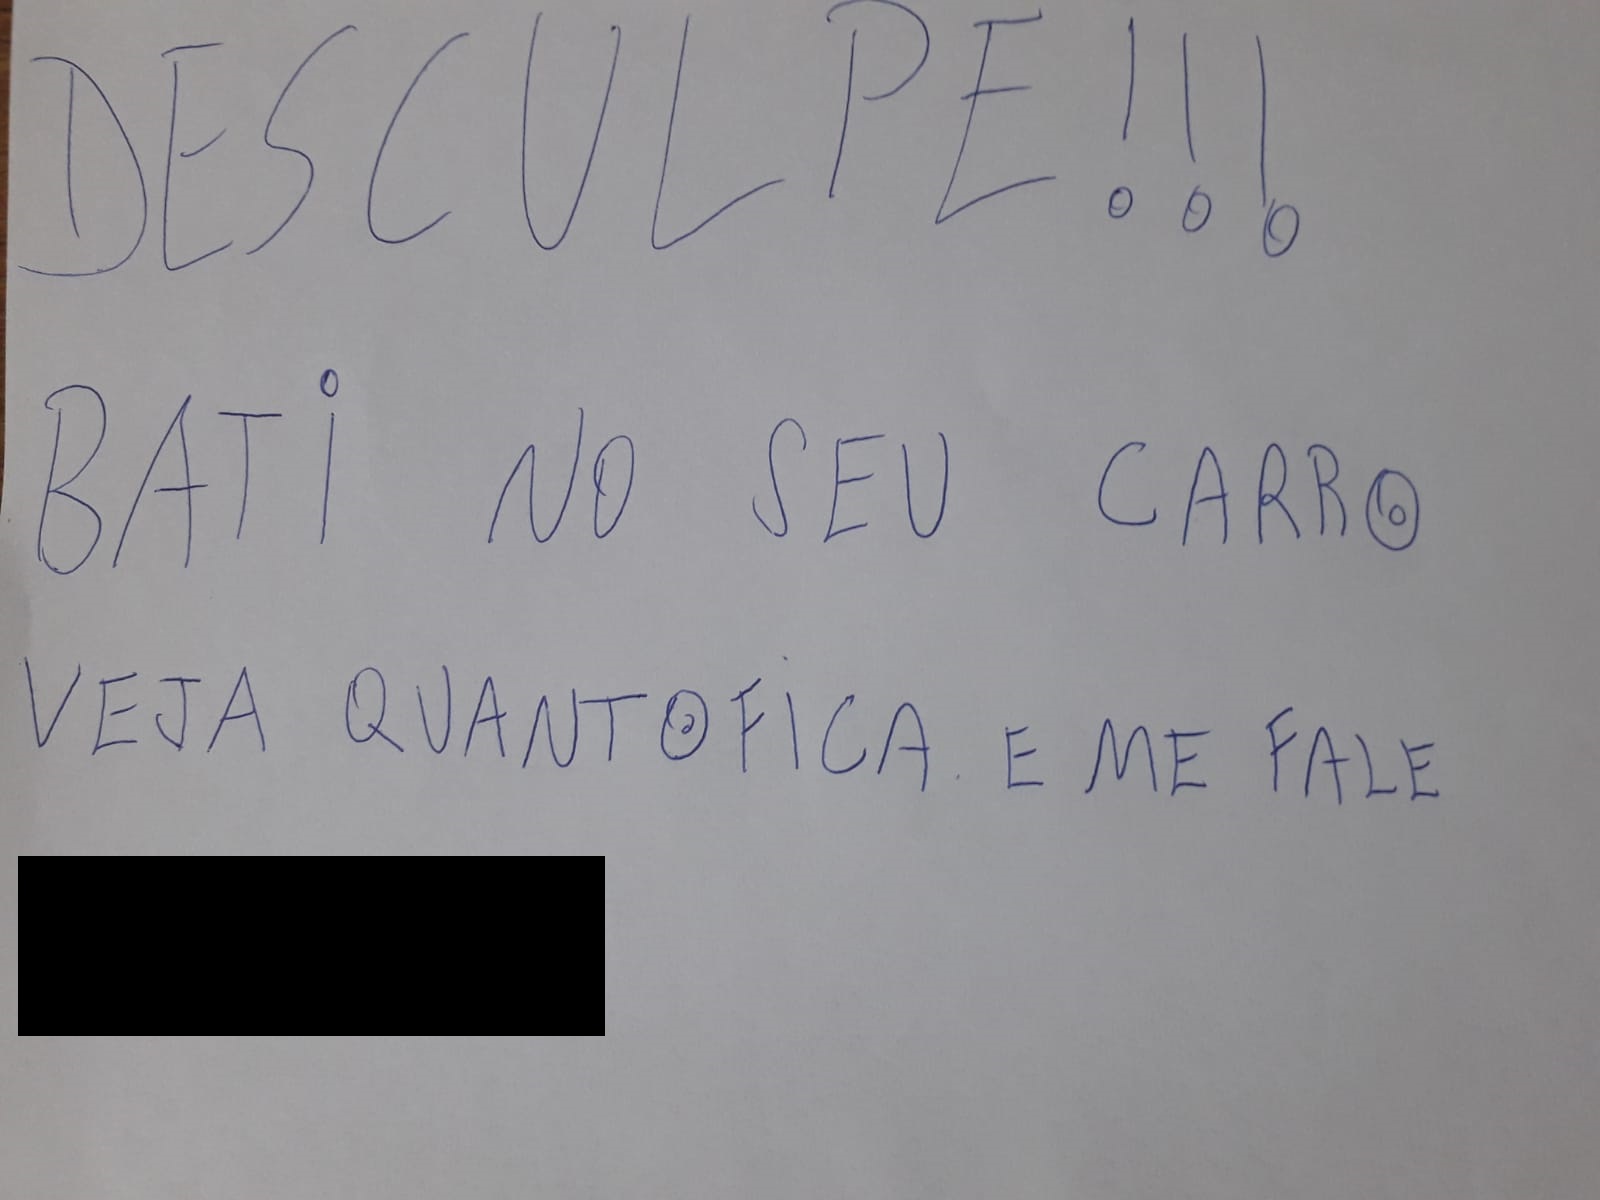 DESCULPE!!!
BATi NO SEU CARRO
VEJA QUANTO FICA E ME FALE